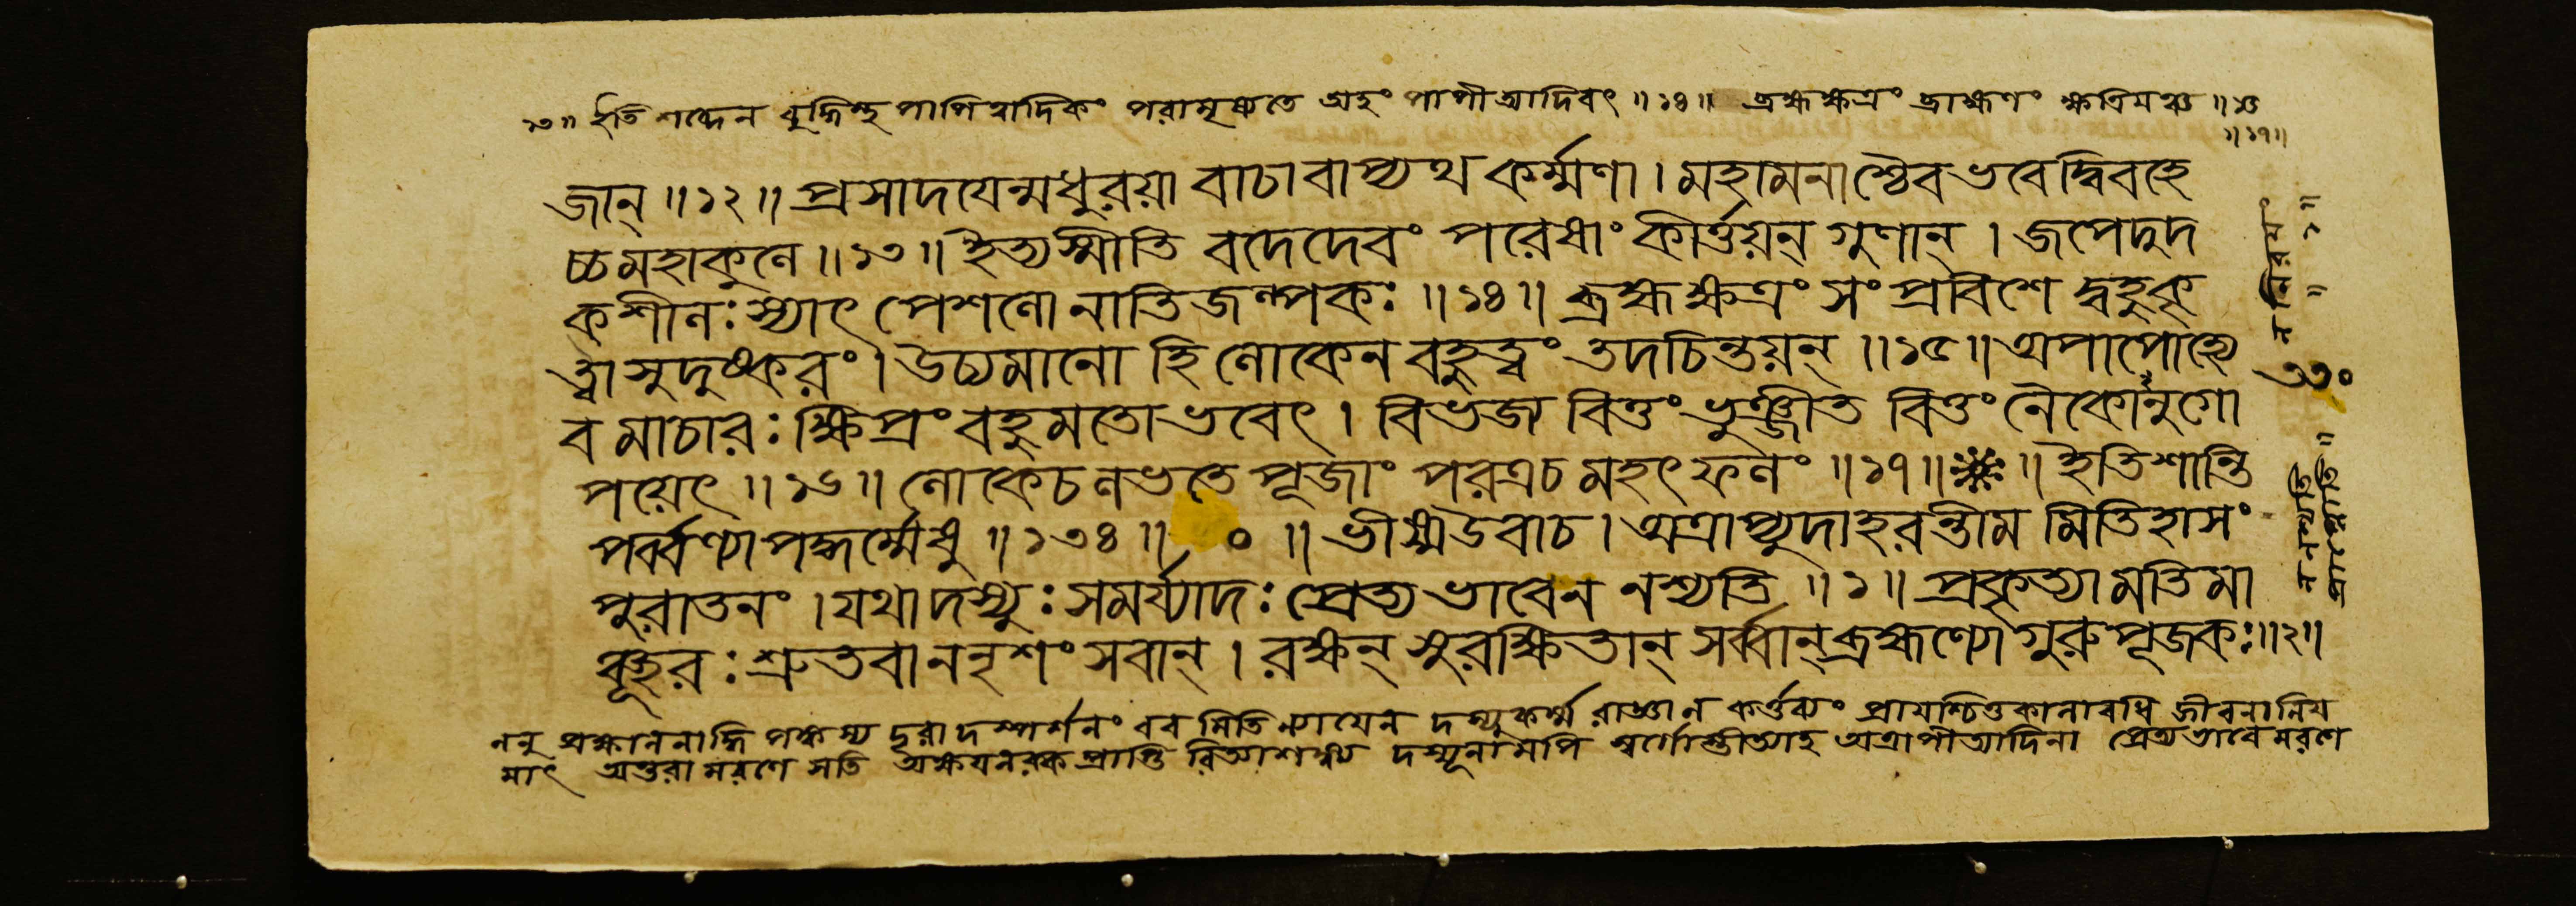 ১৩॥ ইতি শব্দেন বুদ্ধিস্থ পাপিত্বাদিকং পরামৃষ্যতে অহং পাপীত্যাদিবৎ ॥১৪॥ ব্রহ্মক্ষত্রং ব্রাহ্মণং ক্ষত্রিয়ঞ্চ ॥১৫
॥১৭॥
জান্ ॥১২॥ প্রসাদযেন্মধুরয়া বাচা বাপ্যথ কর্ম্মণা । মহামনাশ্চৈব ভবেদ্বিবহে
চ্চ মহাকুলে ॥১৩॥ ইত্যস্মীতি বদেদেবং পরেষাং কীর্ত্তয়ন্ গুণান্ । জপেদুদ
কশীলঃ স্যাৎ পেশলো নাতিজল্পকঃ ॥১৪॥ ব্রহ্মক্ষত্রং সংপ্রবিশে দ্বহুকৃ
ত্বা সুদুষ্করং । উচ্যমানো হি লোকেন বহুত্বং তদচিন্তয়ন্ ॥১৫॥ অপাপোহ্যে
ব মাচারঃ ক্ষিপ্রং বহুমতো ভবেৎ । বিভজ্য বিত্তং ভুঞ্জীত বিত্তং নৈকোনুগো
পয়েৎ ॥১৬॥ লোকে চ লভতে পূজাং পরত্র চ মহৎ ফলং ॥১৭॥ ॥ ইতি শান্তি
পর্ব্বণ্যাপদ্ধর্ম্মেষু ॥১৩৪॥ ০ ॥ ভীষ্ম উবাচ । অত্রাপ্যুদাহরন্তীম মিতিহাসং
পুরাতনং । যথা দস্যুঃ সমর্য্যাদঃ প্রেত্যভাবেন নশ্যতি ॥১॥ প্রকৃত্যা মতিমা
ঞ্ছূরঃ শ্রুতবাননৃশংসবান্ । রক্ষন্ সুরক্ষিতান্ সর্ব্বান্ ব্রহ্মণ্যো গুরুপূজকঃ ॥২॥
ননু প্রক্ষালনাদ্ধি পঙ্কস্য দূরাদস্পর্শনং বর মিতি ন্যাযেন দস্যুকর্ম্ম রাজ্ঞা ন কর্ত্তব্যং প্রাযশ্চিত্তকালাবধি জীবনানিয
মাৎ অন্তরা মরণে সতি অক্ষযনরক প্রাপ্তি রিত্যাশঙ্ক্য দস্যূনামপি স্বর্গোস্তীত্যাহ অত্রাপীত্যাদিনা প্রেত্যভাবে মরণে
৩৩০